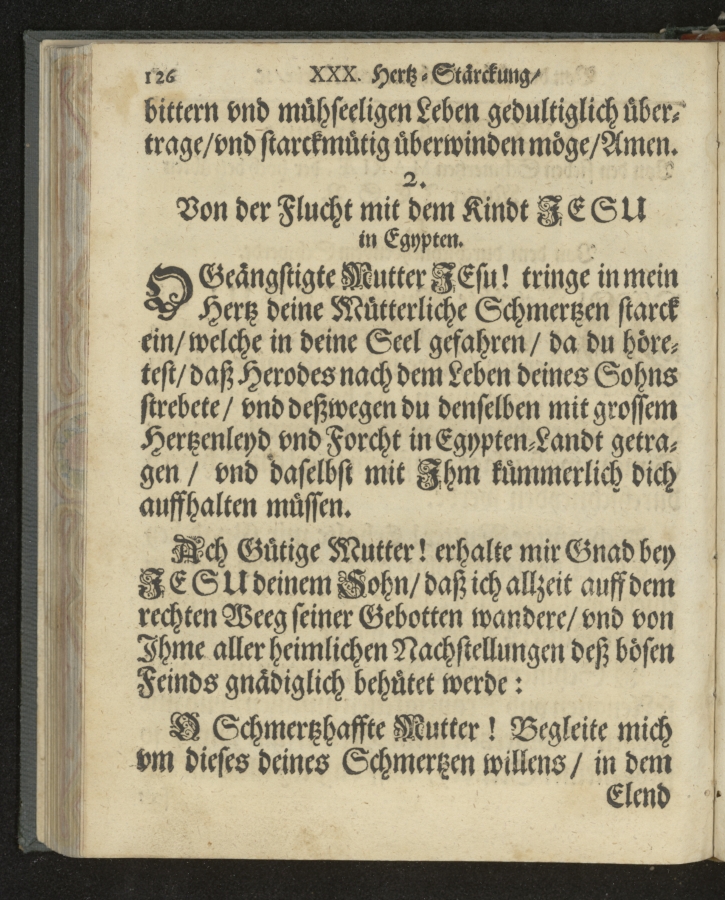 126 XXX. Hertz-Stärckung/
bittern vnd mühseeligen Leben gedultiglich über-
trage/vnd starckmütig überwinden möge/Amen.
2.
Von der Flucht mit dem Kindt JESU
in Egypten.
O Geängstigte Mutter JEsu! tringe in mein
Hertz deine Mütterliche Schmertzen starck
ein/ welche in deine Seel gefahren / da du höre-
test/ daß Herodes nach dem Leben deines Sohns
strebete / vnd deßwegen du denselben mit grossem
Hertzenleyd vnd Forcht in Egypten-Landt getra-
gen / vnd daselbst mit Ihm kümmerlich dich
auffhalten müssen.
Ach Gütige Mutter! erhalte mir Gnad bey
JESU deinem Sohn/ daß ich allzeit auff dem
rechten Weeg seiner Gebotten wandere/ vnd von
Ihme aller heimlichen Nachstellungen deß bösen
Feinds gnädiglich behütet werde :
O Schmertzhaffte Mutter ! Begleite mich
vm dieses deines Schmertzen willens / in dem
Elend